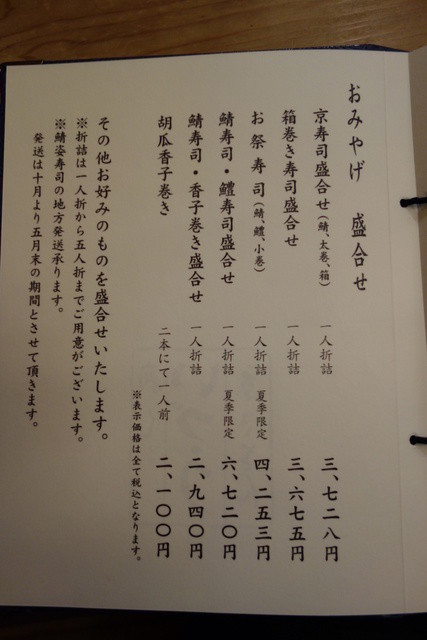 おみやげ 盛合せ
京寿司盛合せ(鯖、太巻、箱) 一人折詰 三、七二八円
箱巻き寿司盛合せ 一人折詰 三、六七五円
お祭寿司(鯖、鱧、小巻) 一人折詰 夏季限定 四、二五三円
鯖寿司・鱧寿司盛合せ 一人折詰 夏季限定 六、七二〇円
鯖寿司・香子巻き盛合せ 一人折詰 二、九四〇円
胡瓜香子巻き 二本にて一人前 二、一〇〇円
※表示価格は全て税込となります。
その他お好みのものを盛合せいたします。
※折詰は一人折から五人折までご用意がございます。
※鯖姿寿司の地方発送承ります。
発送は十月より五月末の期間とさせて頂きます。